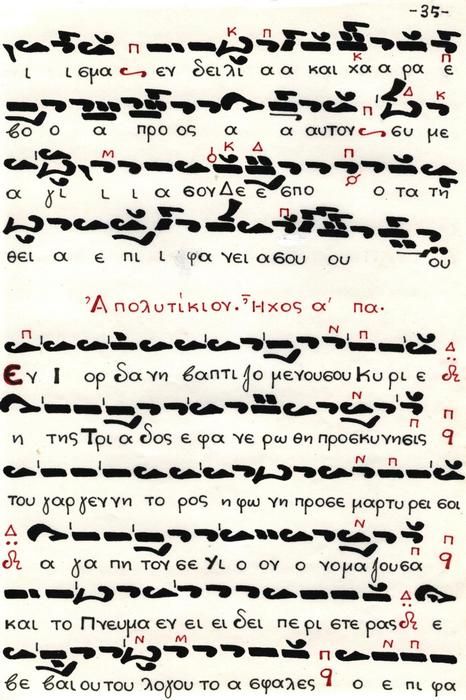 -35-
ι ι σμα εν δει λι α α και χα α ρα ε
βο ο α προ ος α α αυτον συ με
α γι ι ι α σου Δε ε σπο ο τα τη
θει α ε πι ι φα νει α σου ου ου
Ἀπολυτίκιον. Ἦχος α' πα.
Εν Ι ορ δα νη βαπτι ζο μενουσου Κυ ρι ε
η της Τρι α δος ε φα νε ρω θη προσκυνησις
του γαρ γεννη το ρος η φω νη προσε μαρτυ ρει σοι
α γα πη τον σε Υι ο ον ο νομα ζουσα
και το Πνευμα εν ει ει δει πε ρι στε ρας ε
βε βαι ου του λογου το α σφαλες ο ε πι φα